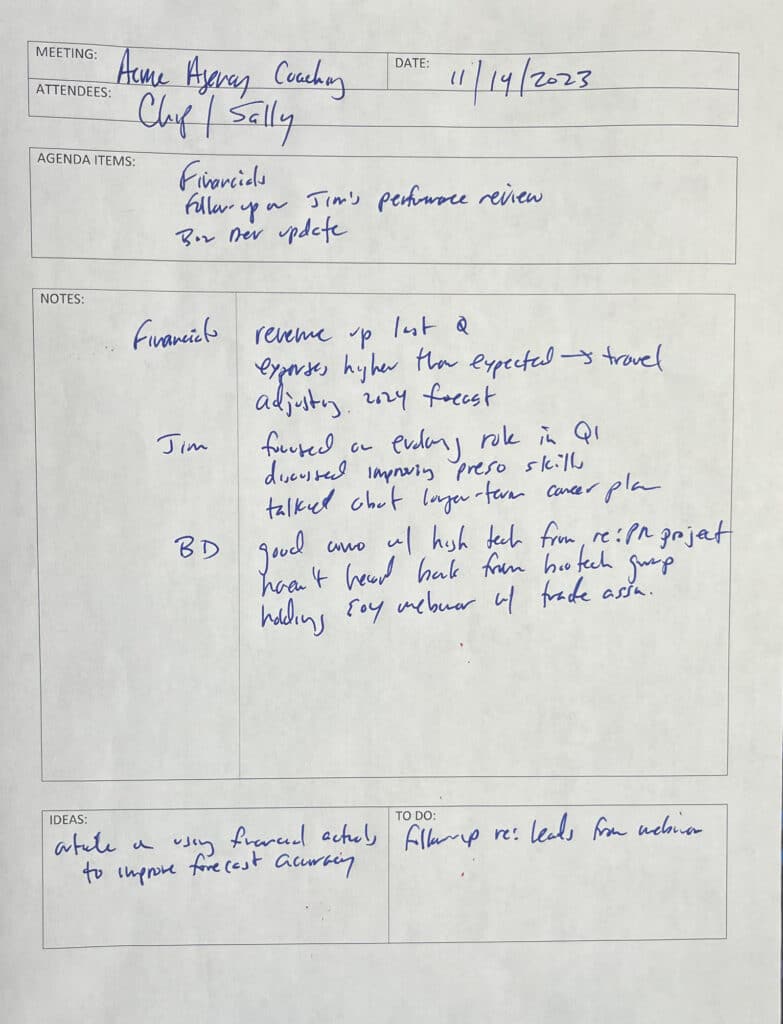 MEETING: Acme Agency Coaching
DATE: 11/14/2023
ATTENDEES: Chip / Sally
AGENDA ITEMS:
Financials
Follow-up on Jim's performance review
Biz Dev update
NOTES:
Financials revenue up last Q
expenses higher than expected → travel
adjusting 2024 forecast
Jim focused on evolving role in Q1
discussed improving preso skills
talked about longer-term career plan
BD good convo w/ high tech firm re: PR project
haven't heard back from biotech group
holding EOY webinar w/ trade assn.
IDEAS:
article on using financial actuals
to improve forecast accuracy
TO DO:
Follow-up re: leads from webinar